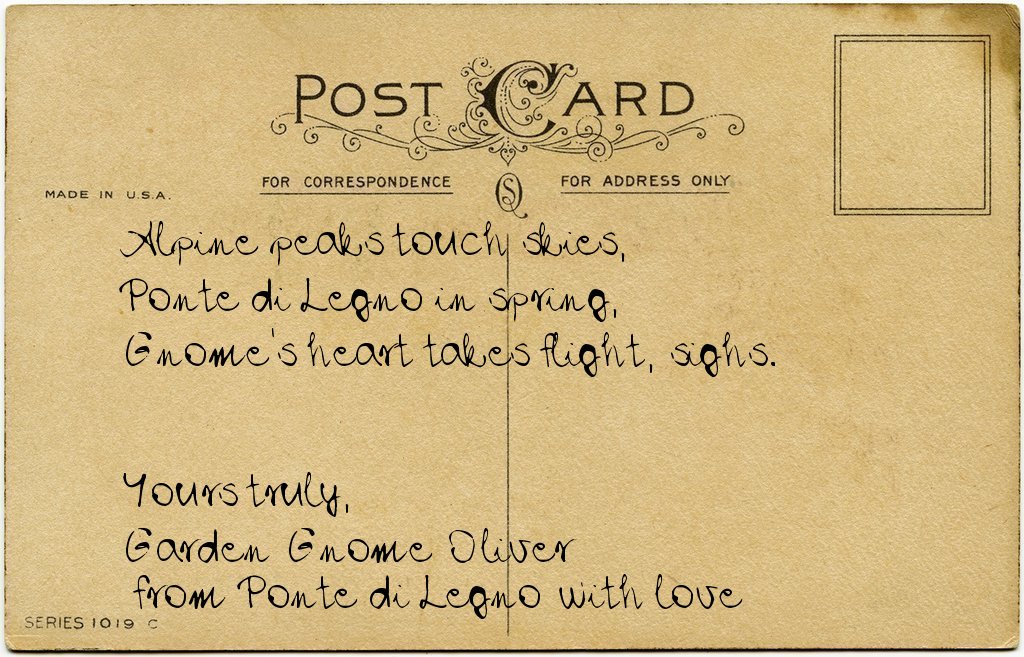 POST CARD
FOR CORRESPONDENCE
FOR ADDRESS ONLY
MADE IN U.S.A.
Alpine peaks touch skies,
Ponte di Legno in spring,
Gnome's heart takes flight, sighs.
Yours truly,
Garden Gnome Oliver
from Ponte di Legno with love
SERIES 1019 C